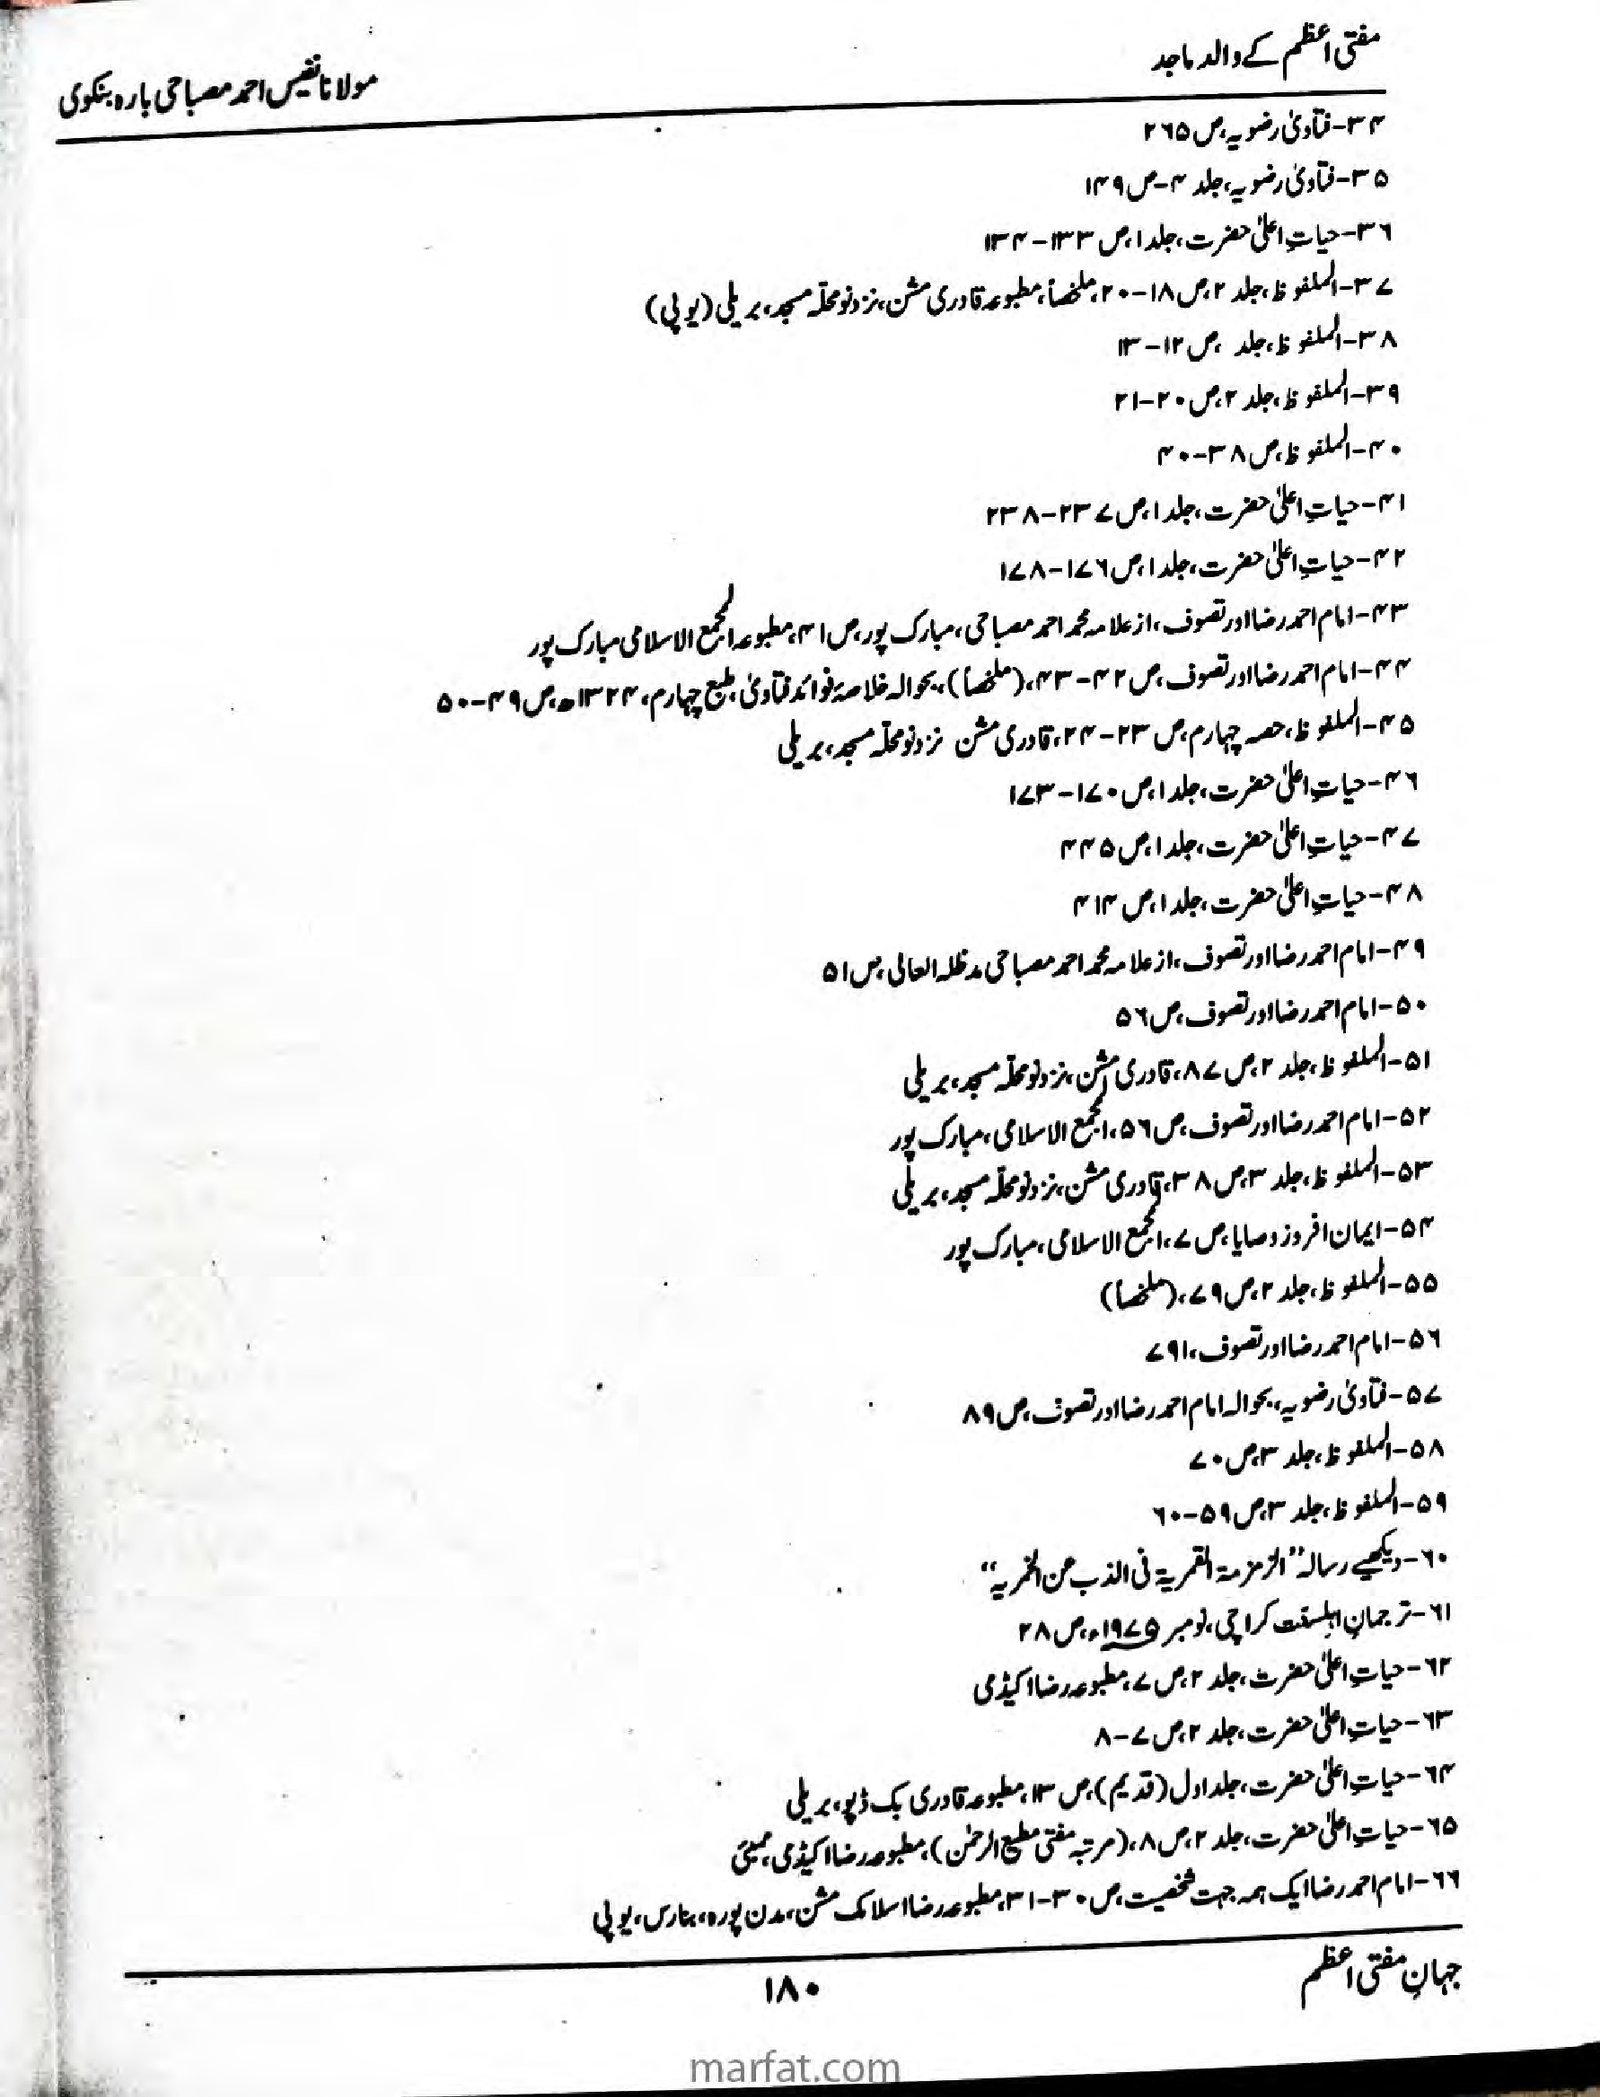 مفتی اعظم کے والد ماجد
مولانا نفیس احمد مصباحی بارہ بنکوی
۳۴-فتاویٰ رضویہ، ص ۲۶۵
۳۵-فتاویٰ رضویہ، جلد ۴-ص ۱۴۹
۳۶-حیاتِ اعلیٰ حضرت، جلد ۱، ص ۱۳۳-۱۳۴
۳۷-الملفوظ، جلد ۲، ص ۱۸-۲۰، ملخصاً، مطبوعہ قادری مشن، نزد نو محلّہ مسجد، بریلی (یوپی)
۳۸-الملفوظ، جلد ، ص ۱۲-۱۳
۳۹-الملفوظ، جلد ۲، ص ۲۰-۲۱
۴۰-الملفوظ، ص ۳۸-۴۰
۴۱-حیاتِ اعلیٰ حضرت، جلد ۱، ص ۲۳۷-۲۳۸
۴۲-حیاتِ اعلیٰ حضرت، جلد ۱، ص ۱۷۶-۱۷۸
۴۳-امام احمد رضا اور تصوف، از علامہ محمد احمد مصباحی، مبارک پور، ص ۴۱، مطبوعہ المجمع الاسلامی مبارک پور
۴۴-امام احمد رضا اور تصوف، ص ۴۲-۴۳، (ملخصاً)، بحوالہ خلاصۂ فوائد فتاویٰ، طبع چہارم، ۱۳۲۴ھ، ص ۴۹-۵۰
۴۵-الملفوظ، حصہ چہارم، ص ۲۳-۲۴، قادری مشن نزد نو محلّہ مسجد، بریلی
۴۶-حیاتِ اعلیٰ حضرت، جلد ۱، ص ۱۷۰-۱۷۳
۴۷-حیاتِ اعلیٰ حضرت، جلد ۱، ص ۴۴۵
۴۸-حیاتِ اعلیٰ حضرت، جلد ۱، ص ۴۱۴
۴۹-امام احمد رضا اور تصوف، از علامہ محمد احمد مصباحی مدظلہ العالی، ص ۵۱
۵۰-امام احمد رضا اور تصوف، ص ۵۶
۵۱-الملفوظ، جلد ۲، ص ۸۷، قادری مشن، نزد نو محلّہ مسجد، بریلی
۵۲-امام احمد رضا اور تصوف، ص ۵۶، المجمع الاسلامی، مبارک پور
۵۳-الملفوظ، جلد ۳، ص ۳۸، قادری مشن، نزد نو محلّہ مسجد، بریلی
۵۴-ایمان افروز وصایا، ص ۷، المجمع الاسلامی، مبارک پور
۵۵-الملفوظ، جلد ۲، ص ۷۹، (ملخصاً)
۵۶-امام احمد رضا اور تصوف، ۷۹۱
۵۷-فتاویٰ رضویہ، بحوالہ امام احمد رضا اور تصوف، ص ۸۹
۵۸-الملفوظ، جلد ۳، ص ۷۰
۵۹-الملفوظ، جلد ۳، ص ۵۹-۶۰
۶۰-دیکھیے رسالہ ”الزمزمۃ القمریۃ فی الذب عن الخمریہ“
۶۱-ترجمانِ اہلسنّت کراچی، نومبر ۱۹۷۵ء، ص ۲۸
۶۲-حیاتِ اعلیٰ حضرت، جلد ۲، ص ۷، مطبوعہ رضا اکیڈی
۶۳-حیاتِ اعلیٰ حضرت، جلد ۲، ص ۷-۸
۶۴-حیاتِ اعلیٰ حضرت، جلد اول (قدیم)، ص ۱۳، مطبوعہ قادری بک ڈپو، بریلی
۶۵-حیاتِ اعلیٰ حضرت، جلد ۲، ص ۸، (مرتبہ مفتی مطیع الرحمٰن)، مطبوعہ رضا اکیڈی، ممبئی
۶۶-امام احمد رضا ایک ہمہ جہت شخصیت، ص ۳۰-۳۱، مطبوعہ رضا اسلامک مشن، مدن پورہ، بنارس، یوپی
جہانِ مفتی اعظم
۱۸۰
marfat.com